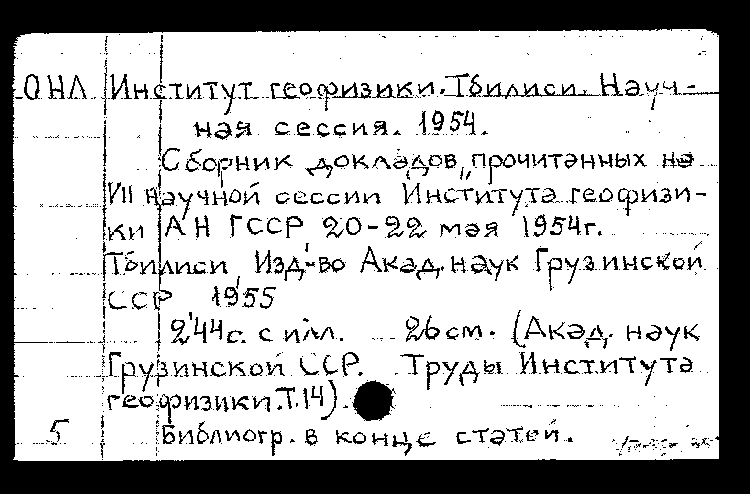 ОНЛ Институт геофизики. Тбилиси. Науч-
ная сессия. 1954.
Сборник докладов, прочитанных на
VII научной сессии Института геофизи-
ки АН ГССР 20-22 мая 1954г.
Тбилиси, Изд-во Акад. наук Грузинской
ССР 1955
244с. с илл. 26см. (Акад. наук
Грузинской ССР. Труды Института
геофизики. Т.14).
5 Библиогр. в конце статей.